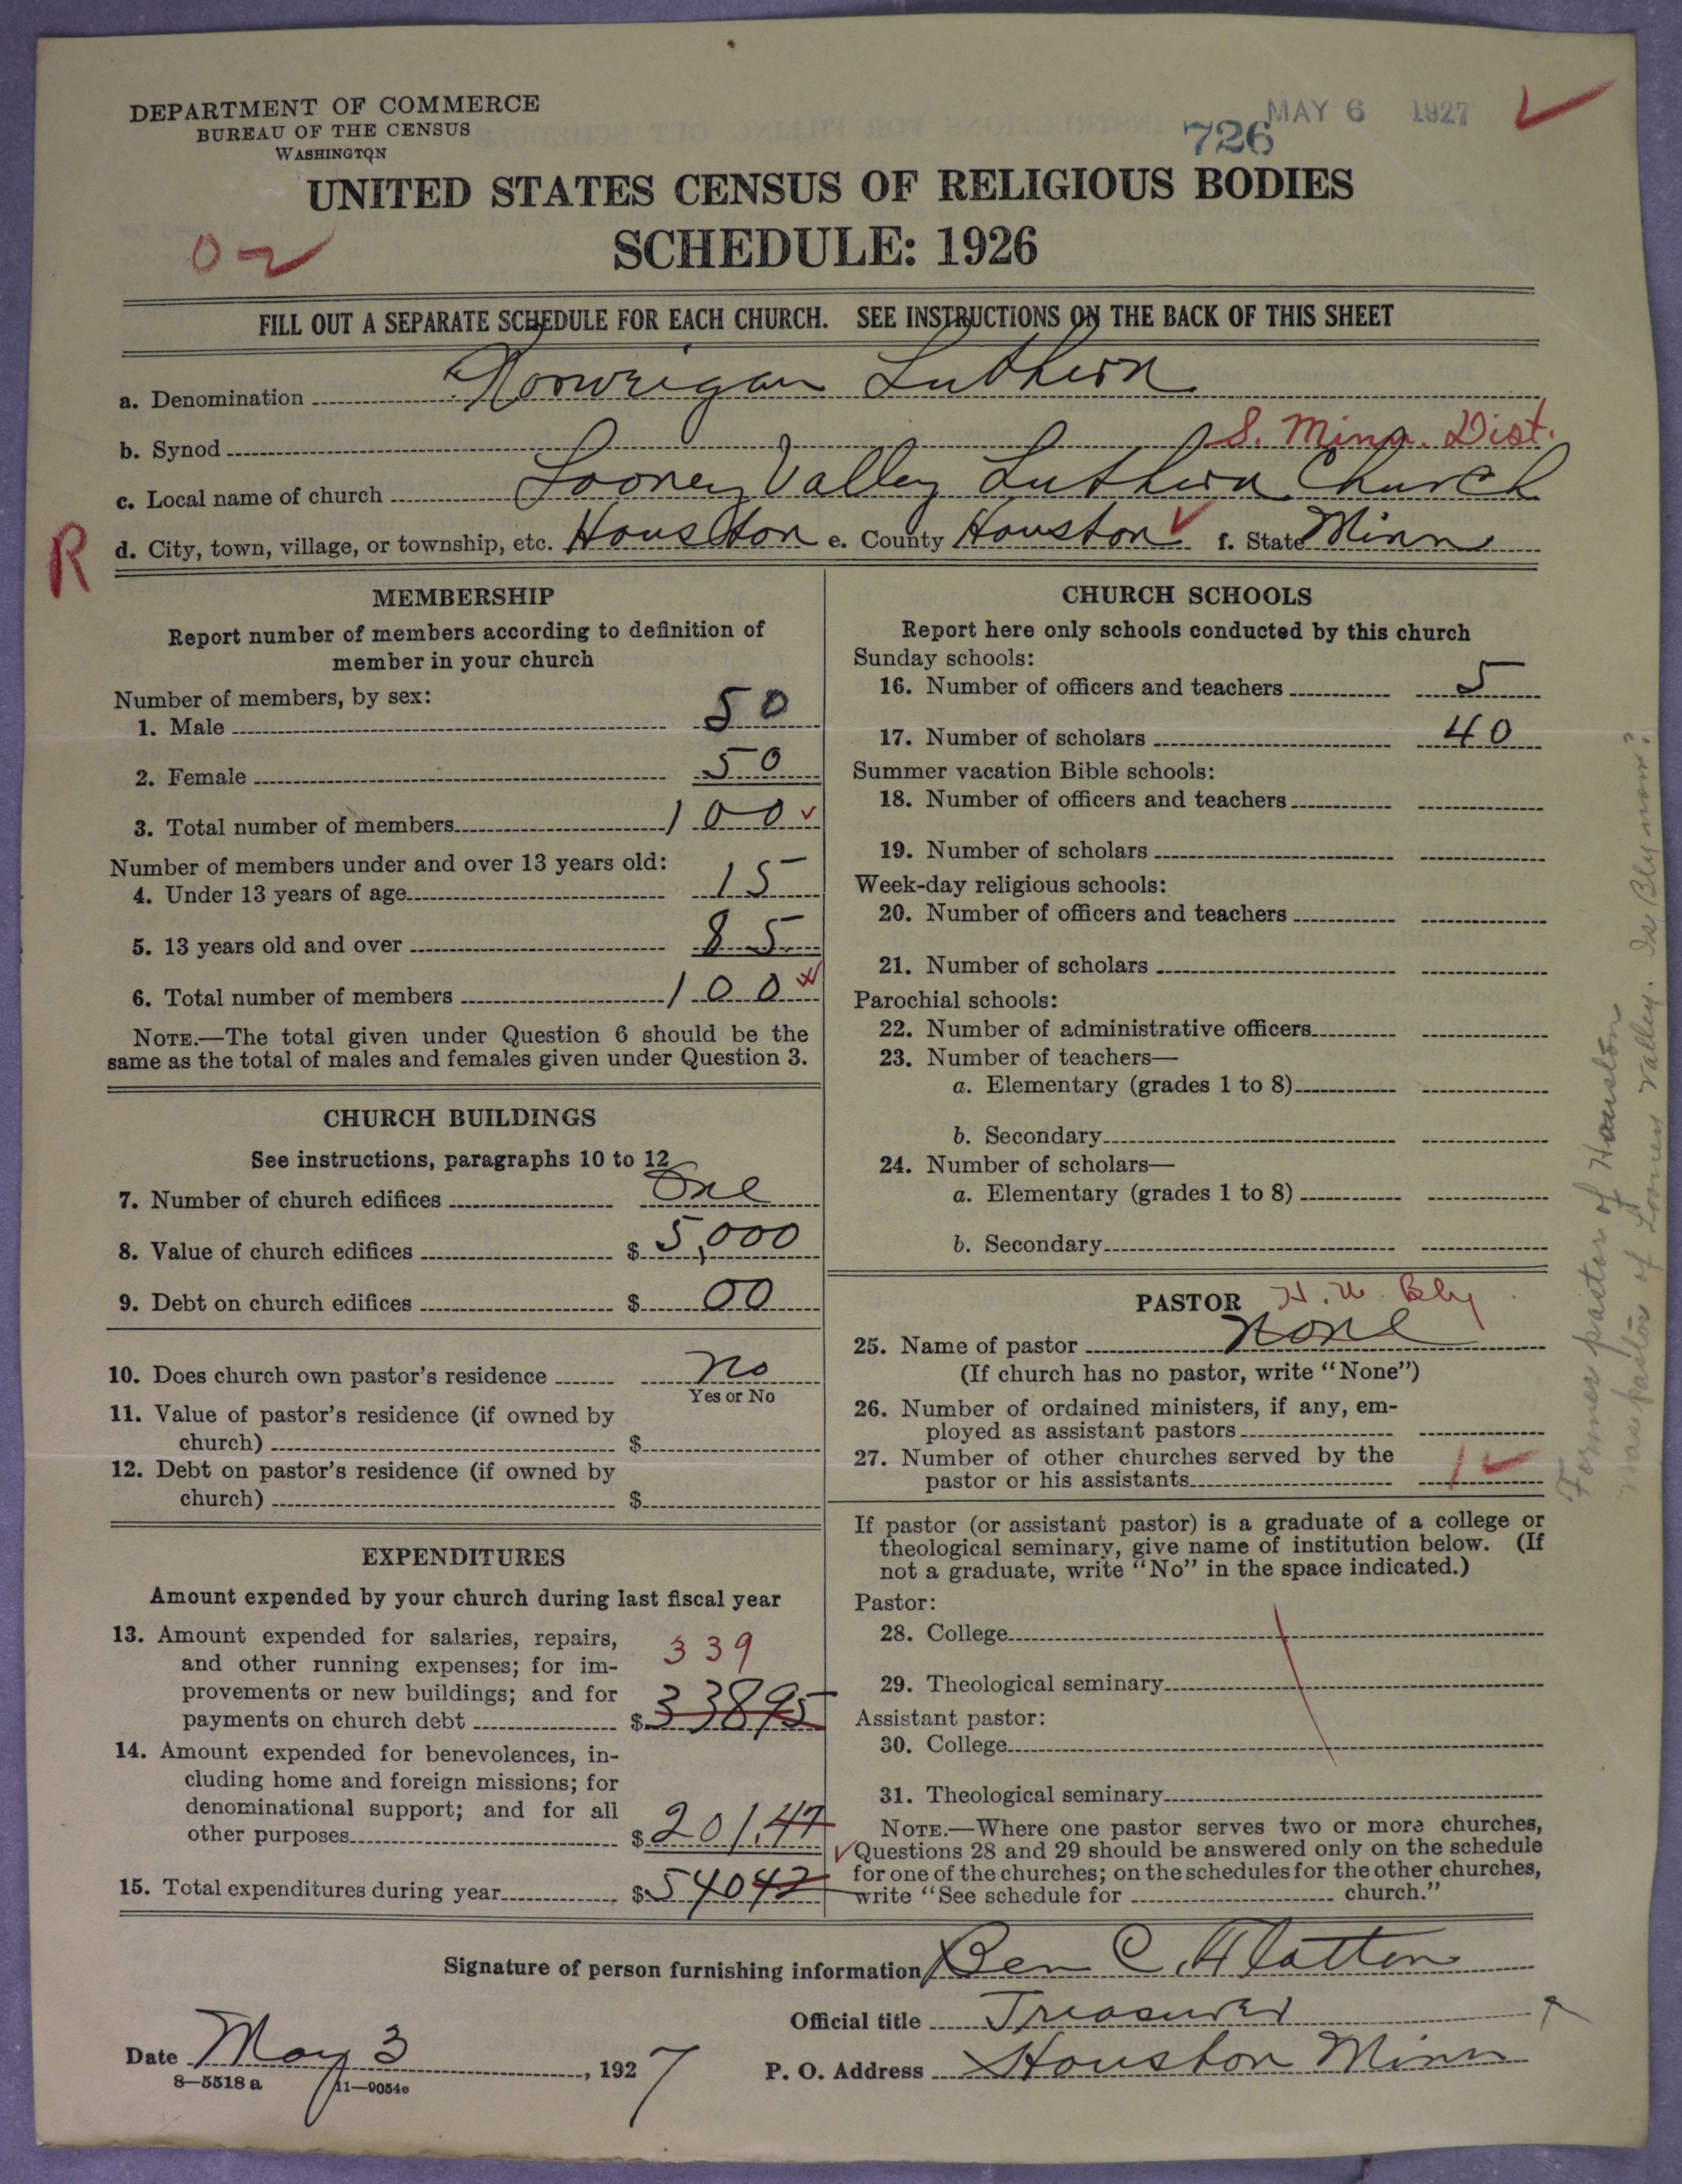 DEPARTMENT OF COMMERCE
BUREAU OF THE CENSUS
WASHINGTON
MAY 6 1927
726
UNITED STATES CENSUS OF RELIGIOUS BODIES
SCHEDULE: 1926
FILL OUT A SEPARATE SCHEDULE FOR EACH CHURCH. SEE INSTRUCTIONS ON THE BACK OF THIS SHEET
a. Denomination Norweigan Luthern
b. Synod S. Minn. Dist.
c. Local name of church Looney Valley Luthern Church
R
d. City, town, village, or township, etc. Houston e. County Houston f. State Minn
MEMBERSHIP
Report number of members according to definition of
member in your church
Number of members, by sex:
1. Male 50
2. Female 50
3. Total number of members 100
Number of members under and over 13 years old:
4. Under 13 years of age 15
5. 13 years old and over 85
6. Total number of members 100
NOTE.—The total given under Question 6 should be the
same as the total of males and females given under Question 3.
CHURCH BUILDINGS
See instructions, paragraphs 10 to 12
7. Number of church edifices One
8. Value of church edifices $ 5,000
9. Debt on church edifices $ 00
10. Does church own pastor's residence no
Yes or No
11. Value of pastor's residence (if owned by
church) $
12. Debt on pastor's residence (if owned by
church) $
EXPENDITURES
Amount expended by your church during last fiscal year
13. Amount expended for salaries, repairs,
and other running expenses; for im-
provements or new buildings; and for
payments on church debt $ 33895
339
14. Amount expended for benevolences, in-
cluding home and foreign missions; for
denominational support; and for all
other purposes $ 201.47
15. Total expenditures during year $ 54042
CHURCH SCHOOLS
Report here only schools conducted by this church
Sunday schools:
16. Number of officers and teachers 5
17. Number of scholars 40
Summer vacation Bible schools:
18. Number of officers and teachers
19. Number of scholars
Week-day religious schools:
20. Number of officers and teachers
21. Number of scholars
Parochial schools:
22. Number of administrative officers
23. Number of teachers—
a. Elementary (grades 1 to 8)
b. Secondary
24. Number of scholars—
a. Elementary (grades 1 to 8)
b. Secondary
PASTOR H. W. Bly
25. Name of pastor none
(If church has no pastor, write "None")
26. Number of ordained ministers, if any, em-
ployed as assistant pastors
27. Number of other churches served by the
pastor or his assistants 1
If pastor (or assistant pastor) is a graduate of a college or
theological seminary, give name of institution below. (If
not a graduate, write "No" in the space indicated.)
Pastor:
28. College
29. Theological seminary
Assistant pastor:
30. College
31. Theological seminary
NOTE.—Where one pastor serves two or more churches,
Questions 28 and 29 should be answered only on the schedule
for one of the churches; on the schedules for the other churches,
write "See schedule for church."
Former pastor of Houston
was pastor of Looney Valley. Is Bly now?
Signature of person furnishing information Ben C.
Official title Treasurer
Date May 3, 1927 P. O. Address Houston Minn
8—5518 a 11—9054e